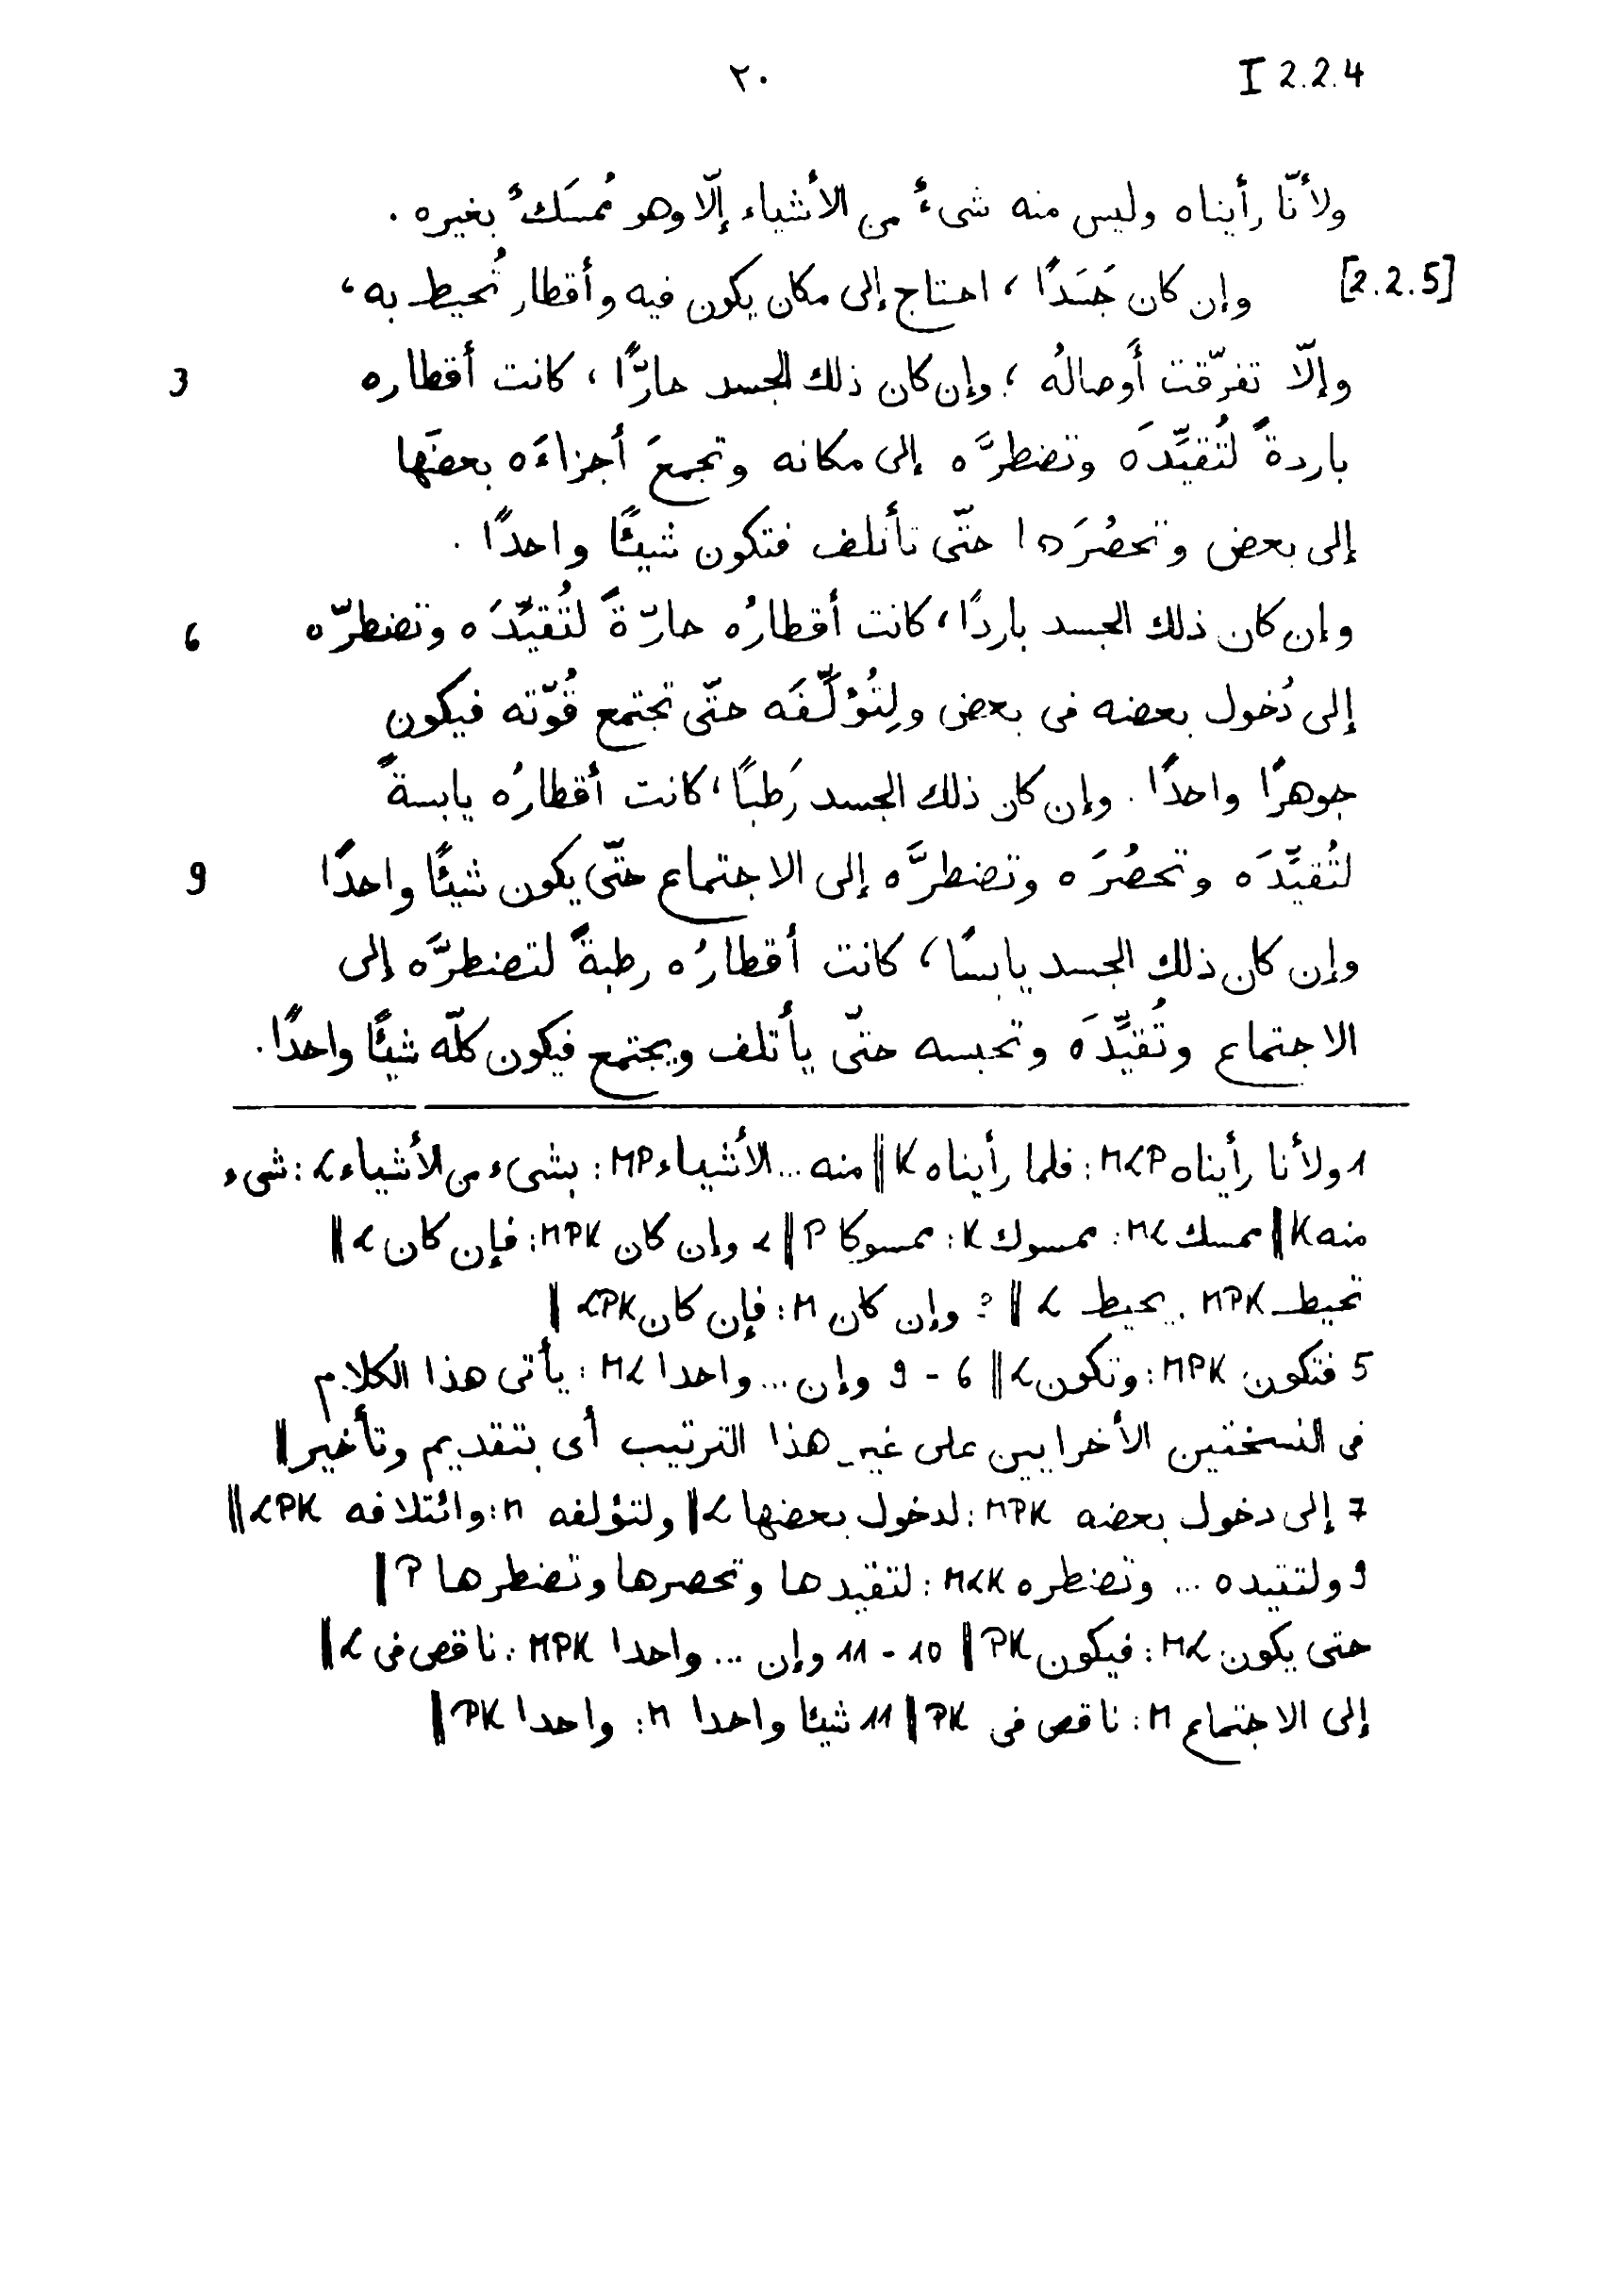 I 2.2.4 ٢٠
ولأنّا رأيناه وليس منه شىءٌ من الأشياء إلّا وهو مُمسَكٌ بغيره .
[2.2.5] وإن كان جَسَدًا ، احتاج إلى مكان يكون فيه وأقطار تُحيط به ،
وإلّا تفرّقت أَوصالُه ؛ وإن كان ذلك الجسد حارًّا ، كانت أقطاره 3
باردةً لتُقيِّدَه وتضطرَّه إلى مكانه وتجمعَ أجزاءَه بعضَها
إلى بعض وتحصُرَها حتّى تأتلف فتكون شيئًا واحدًا .
وإن كان ذلك الجسد باردًا ، كانت أقطارُه حارّةً لتُقيِّدَه وتضطرّه 6
إلى دُخول بعضه فى بعض ولِتُؤلِّفَه حتّى تجتمع قُوّته فيكون
جوهرًا واحدًا . وإن كان ذلك الجسد رَطبًا ، كانت أقطارُه يابسةً
لتُقيِّدَه وتحصُرَه وتضطرَّه إلى الاجتماع حتّى يكون شيئًا واحدًا 9
وإن كان ذلك الجسد يابسًا ، كانت أقطارُه رطبةً لتضطرَّه إلى
الاجتماع وتُقيِّدَه وتحبسه حتّى يأتلف ويجتمع فيكون كلّه شيئًا واحدًا .
1 ولأنا رأيناه MLP : فلما رأيناه K || منه ... الأشياء MP : بشىء من الأشياء L : شىء
منه K || ممسك ML : ممسوك K : ممسوكا P || 2 وإن كان MPK : فإن كان L ||
تحيط MPK : يحيط L || 3 وإن كان M : فإن كان LPK ||
5 فتكون MPK : وتكون L || 6 - 9 وإن ... واحدا ML : يأتى هذا الكلام
فى النسختين الأخرايين على غير هذا الترتيب أى بتقديم وتأخير ||
7 إلى دخول بعضه MPK : لدخول بعضها L || ولتؤلفه M : وائتلافه LPK ||
9 ولتقيده ... وتضطره MLK : لتقيدها وتحصرها وتضطرها P ||
حتى يكون ML : فيكون PK || 10 - 11 وإن ... واحدا MPK : ناقص فى L ||
إلى الاجتماع M : ناقص فى PK || 11 شيئا واحدا M : واحدا PK ||